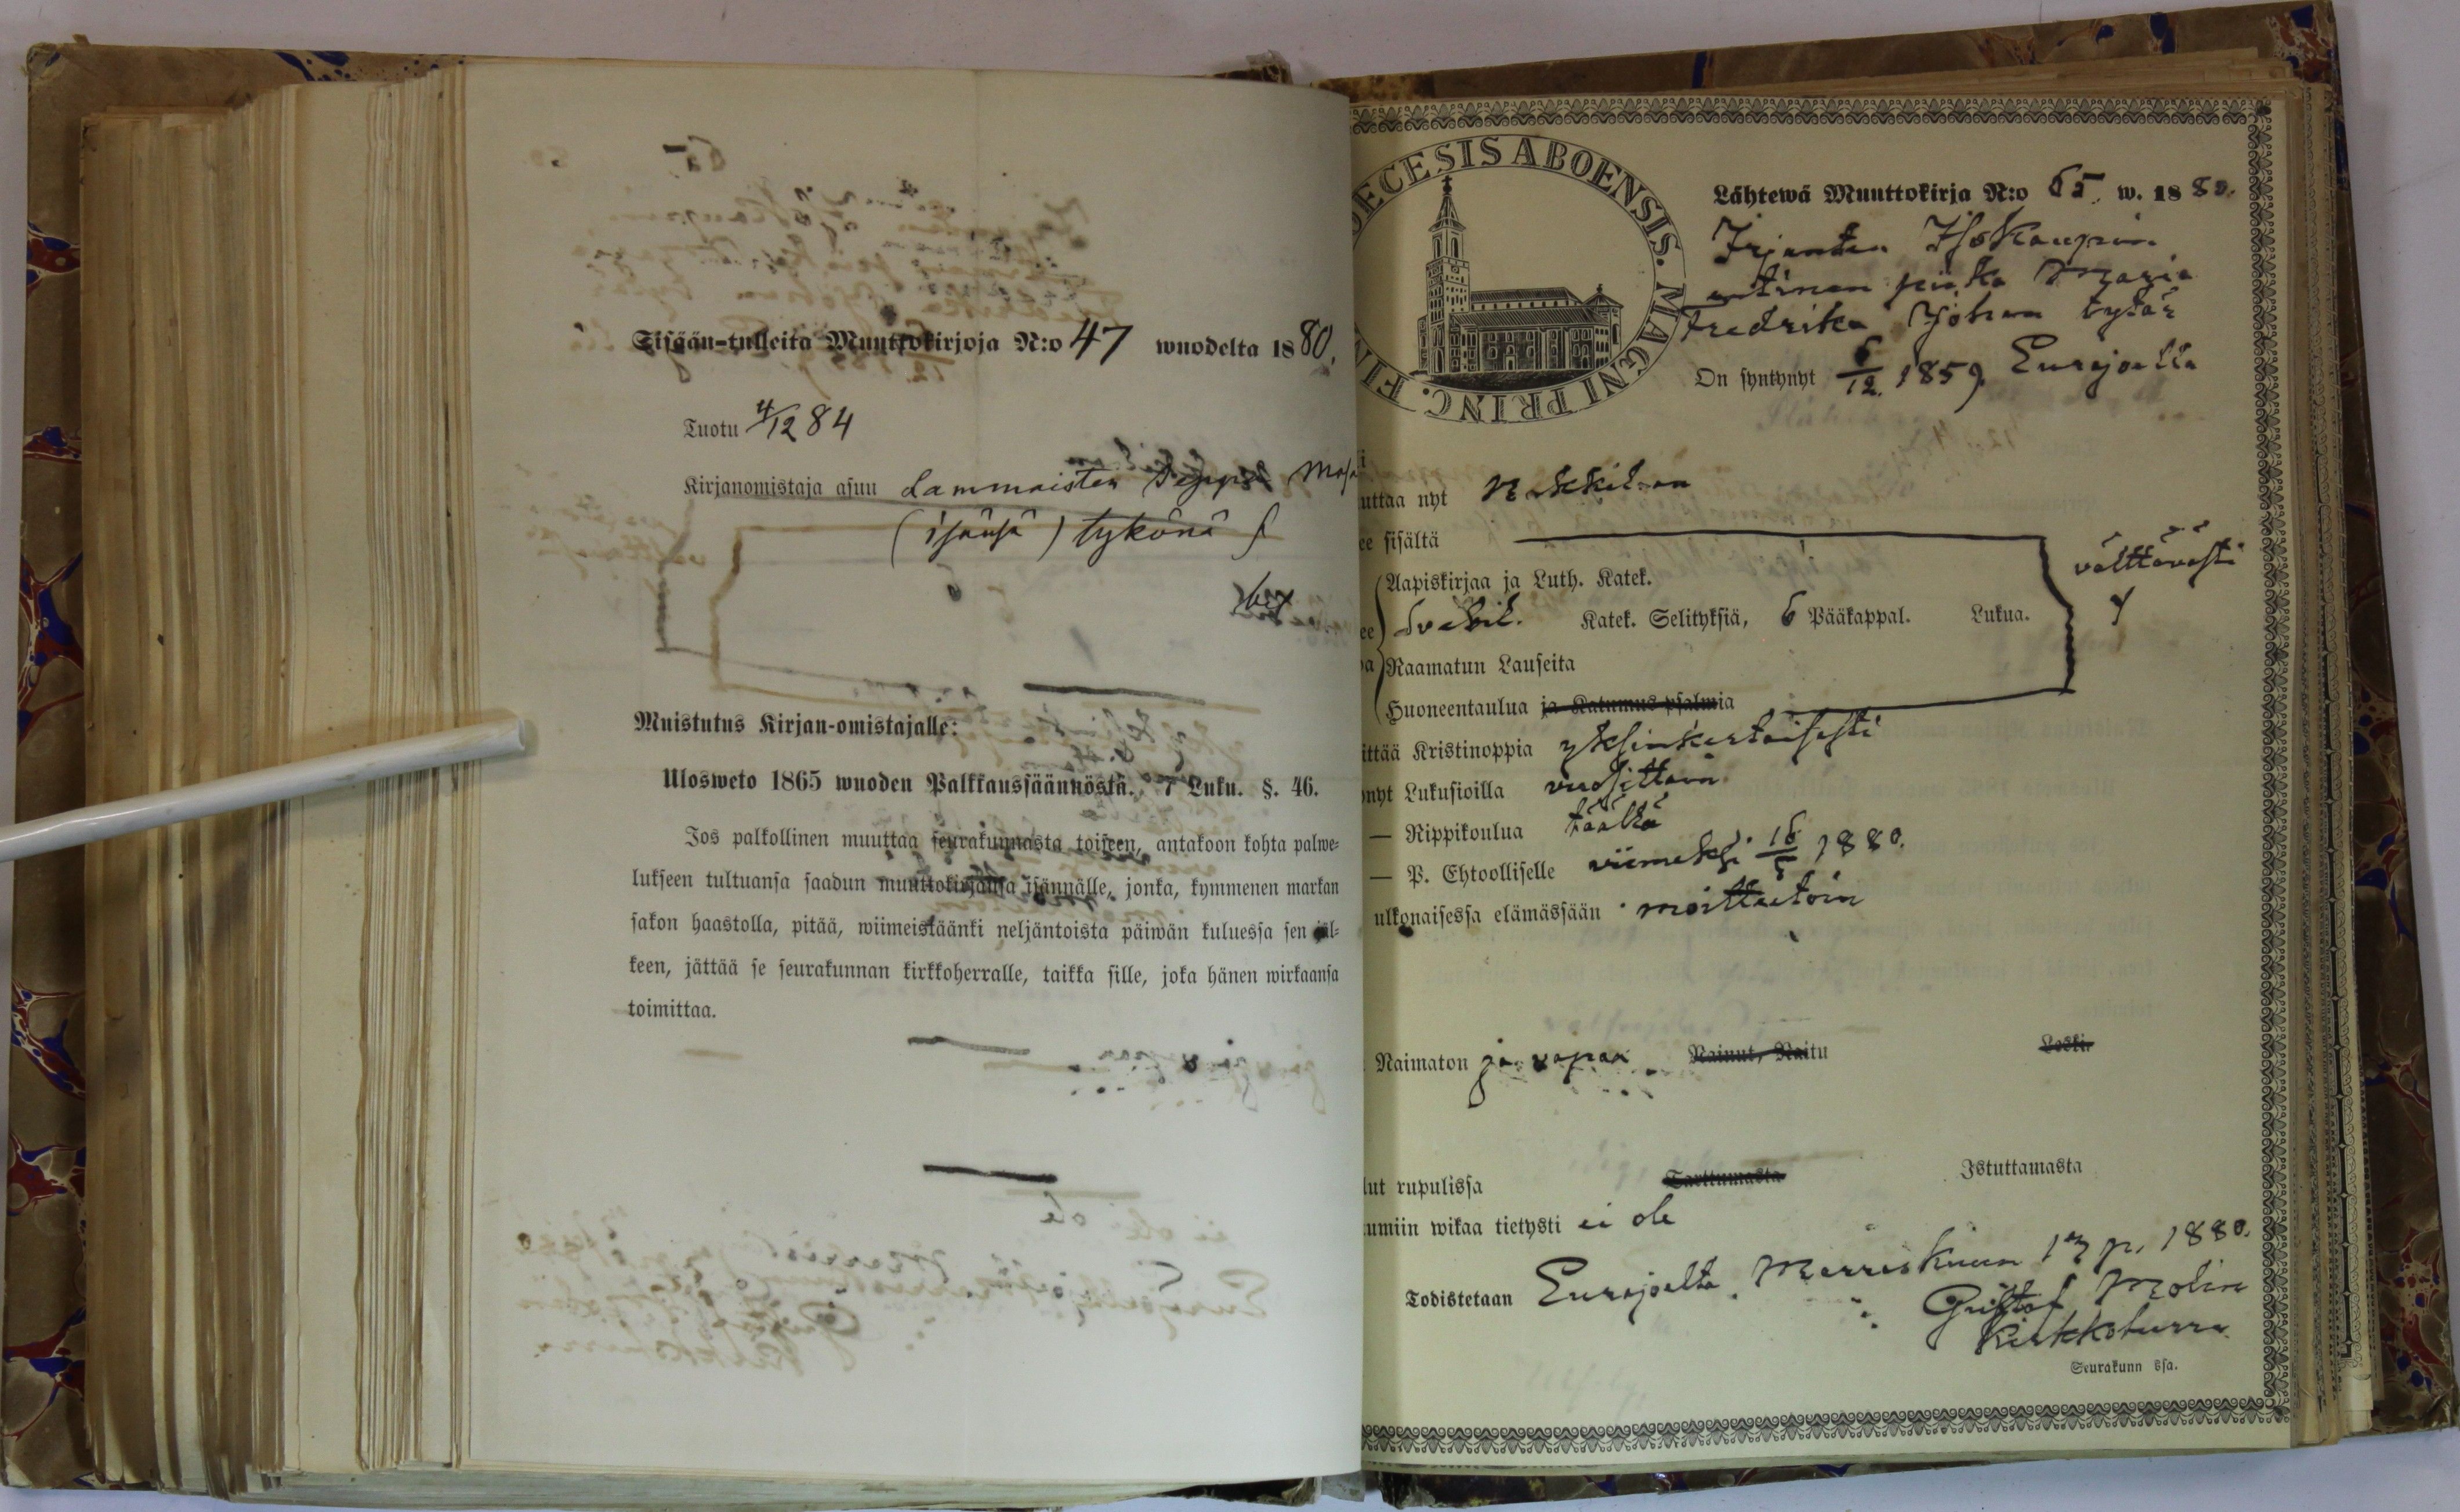 Sisään-tulleita Muuttokirjoja N:o 47 wuodelta 1880.
Tuotu 4/12 84
Kirjanomistaja asuu Lammaisten Seppä
(isänsä) tykönä
Muistutus Kirjan-omistajalle:
Ulosweto 1865 wuoden Palkkaussäännöstä. 7 Luku. §. 46.
Jos palkollinen muuttaa seurakunnasta toiseen, antakoon kohta palwe-
lukseen tultuansa saadun muuttokirjansa isännälle, jonka, kymmenen markan
sakon haastolla, pitää, wiimeistäänki neljäntoista päiwän kuluessa sen jäl-
keen, jättää se seurakunnan kirkkoherralle, taikka sille, joka hänen wirkaansa
toimittaa.
OECESIS ABOENSIS. MAGNI PRINC. FIN
Lähtewä Muuttokirja N:o 65. w. 1880.
Irjanten Isokaupin
entinen piika Maria
Fredrika Johan tytär
On syntynyt 6/12 1859. Eurajoella
uttaa nyt Nakkilaan
ee sisältä
välttävästi
Aapiskirjaa ja Luth. Katek.
ee Svebil. Katek. Selityksiä, 6 Pääkappal. Lukua.
Raamatun Lauseita
Huoneentaulua ja Katumus-psalmia
ittää Kristinoppia yksinkertaisesti
nyt Lukusioilla vuosittain
— Rippikoulua täällä
— P. Ehtoolliselle viimeksi 16/5 1880.
ulkonaisessa elämässään moittietoin
Naimaton ja vapaa Nainut, Naitu Leski
lut rupulissa Tarttumasta Istuttamasta
umiin wikaa tietysti ei ole
Todistetaan Eurajoelta, Marraskuun 17 p. 1880.
Gustaf Molin
Kirkkoherra
Seurakunn ssa.